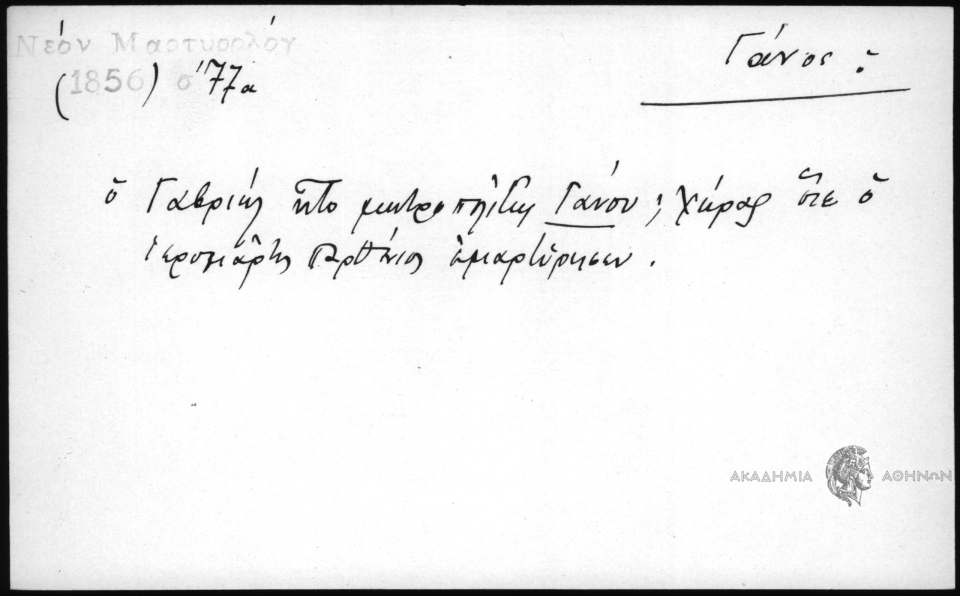 Νέον Μαρτυρολόγ
(1856) σ 77α
Γάνος :
ὁ Γαβριήλ ἦτο μητροπολίτης Γάνου κ Χώρας ὅτε ὁ
ἱερομάρτης Παρθένιος ἐμαρτύρησεν.
ΑΚΑΔΗΜΙΑ ΑΘΗΝΩΝ